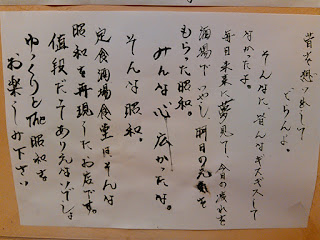 昔を想い出して
ごらんよ。
そんなに、皆んなギスギスして
なかったよ。
毎日未来に夢見て、今日の疲れを
酒場でいやし、明日の元気を
もらった昭和。
みんな心広かったな。
そんな昭和。
定食酒場食堂はそんな
昭和を再現したお店です。
値段だってありえないでしょ
ゆっくりとTHE昭和を。
お楽しみ下さい